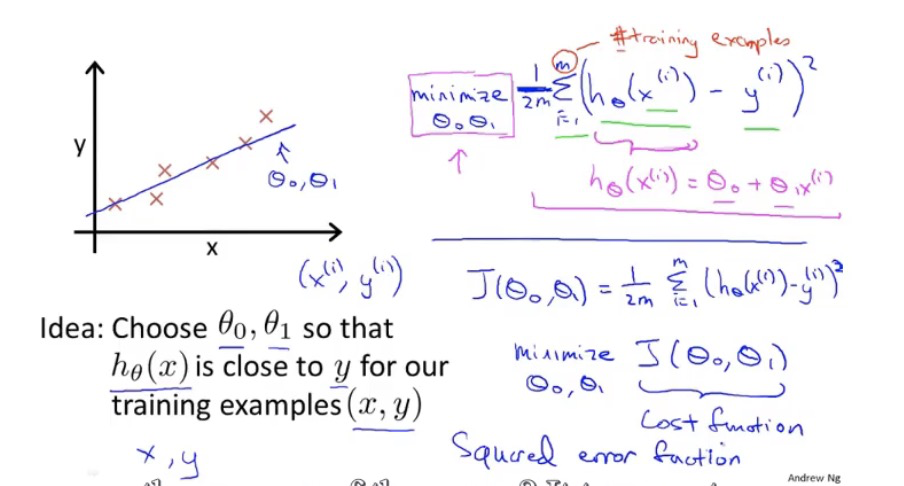 #training examples
minimize
θ₀ θ₁
1/2m Σ_{i=1}^{m} (h_θ(x^(i)) - y^(i))²
h_θ(x^(i)) = θ₀ + θ₁x^(i)
y
θ₀, θ₁
x
(x^(i), y^(i))
J(θ₀, θ₁) = 1/2m Σ_{i=1}^{m} (h_θ(x^(i)) - y^(i))²
Idea: Choose θ₀, θ₁ so that
h_θ(x) is close to y for our
training examples (x, y)
minimize J(θ₀, θ₁)
θ₀, θ₁
Cost function
x, y
Squared error function
Andrew Ng